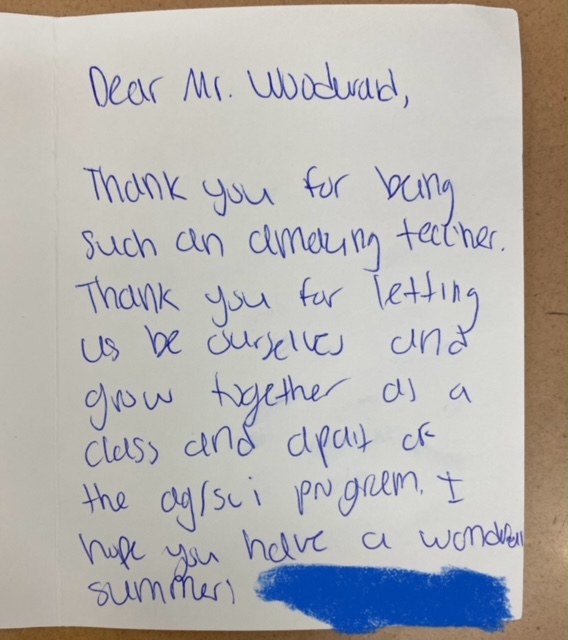 Dear Mr. Woodward,
Thank you for being
such an amazing teacher.
Thank you for letting
us be ourselves and
grow together as a
class and apart of
the ag/sci program. I
hope you have a wonderful
summer!